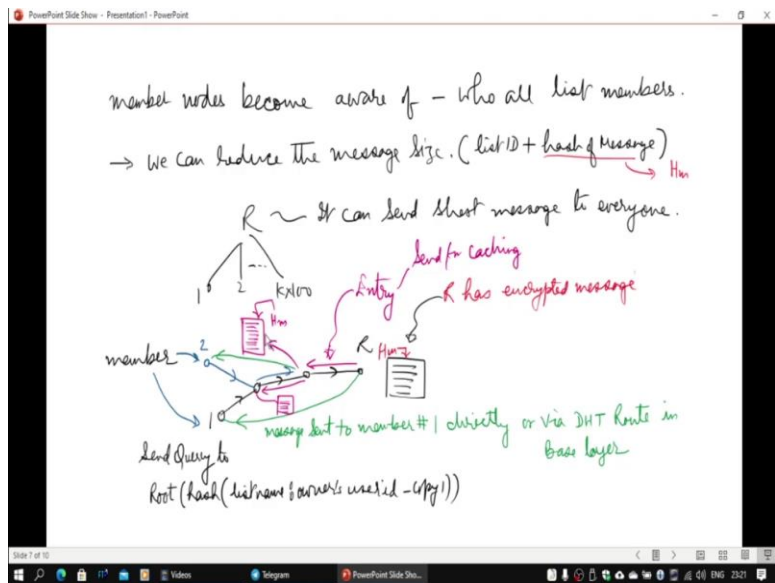 PowerPoint Slide Show - Presentation1 - PowerPoint
member nodes become aware of - who all list members.
→ We can reduce the message size. (list ID + hash of Message)
Hm
R ~ It can send short message to everyone.
1 2 ---- Kx100
Send for caching
Entry
R has encrypted message
Hm
R Hm
member 2
1
message sent to member #1 directly or via DHT Route in
Base layer
Send Query to
Root (hash (listname : owner's userid - copy 1))
Slide 7 of 10
Videos Telegram PowerPoint Slide Sho... ENG 23:21